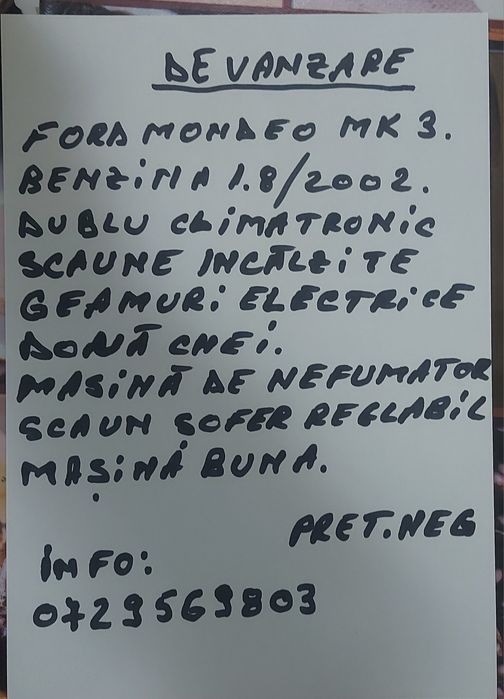 DE VANZARE
FORD MONDEO MK 3.
BENZINA 1.8/2002.
DUBLU CLIMATRONIC
SCAUNE INCĂLZITE
GEAMURI ELECTRICE
DOUĂ CHEI.
MASINĂ DE NEFUMATOR
SCAUN ȘOFER REGLABIL
MAȘINĂ BUNA.
PRET.NEG
INFO:
0729569803